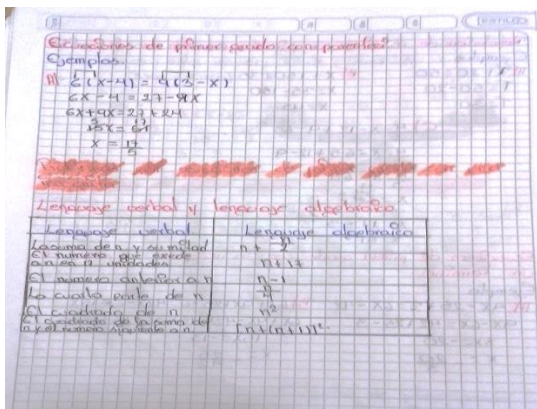 Ecuaciones de primer grado con paréntesis
Ejemplos.
A) 6(x-4) = 9(3-x)
6x-4 = 27-9x
6x+9x=27+24
15x= 51
x = 17/5
Lenguaje verbal y lenguaje algebraico
Lenguaje verbal
Lenguaje algebraico
La suma de n y su mitad
n + n/2
El numero que excede
a n en 17 unidades
n+17
El numero anterior a n
n-1
La cuarta parte de n
n/4
El cuadrado de n
n²
El cuadrado de la suma de
n y el numero siguiente a n
[n+(n+1)]²